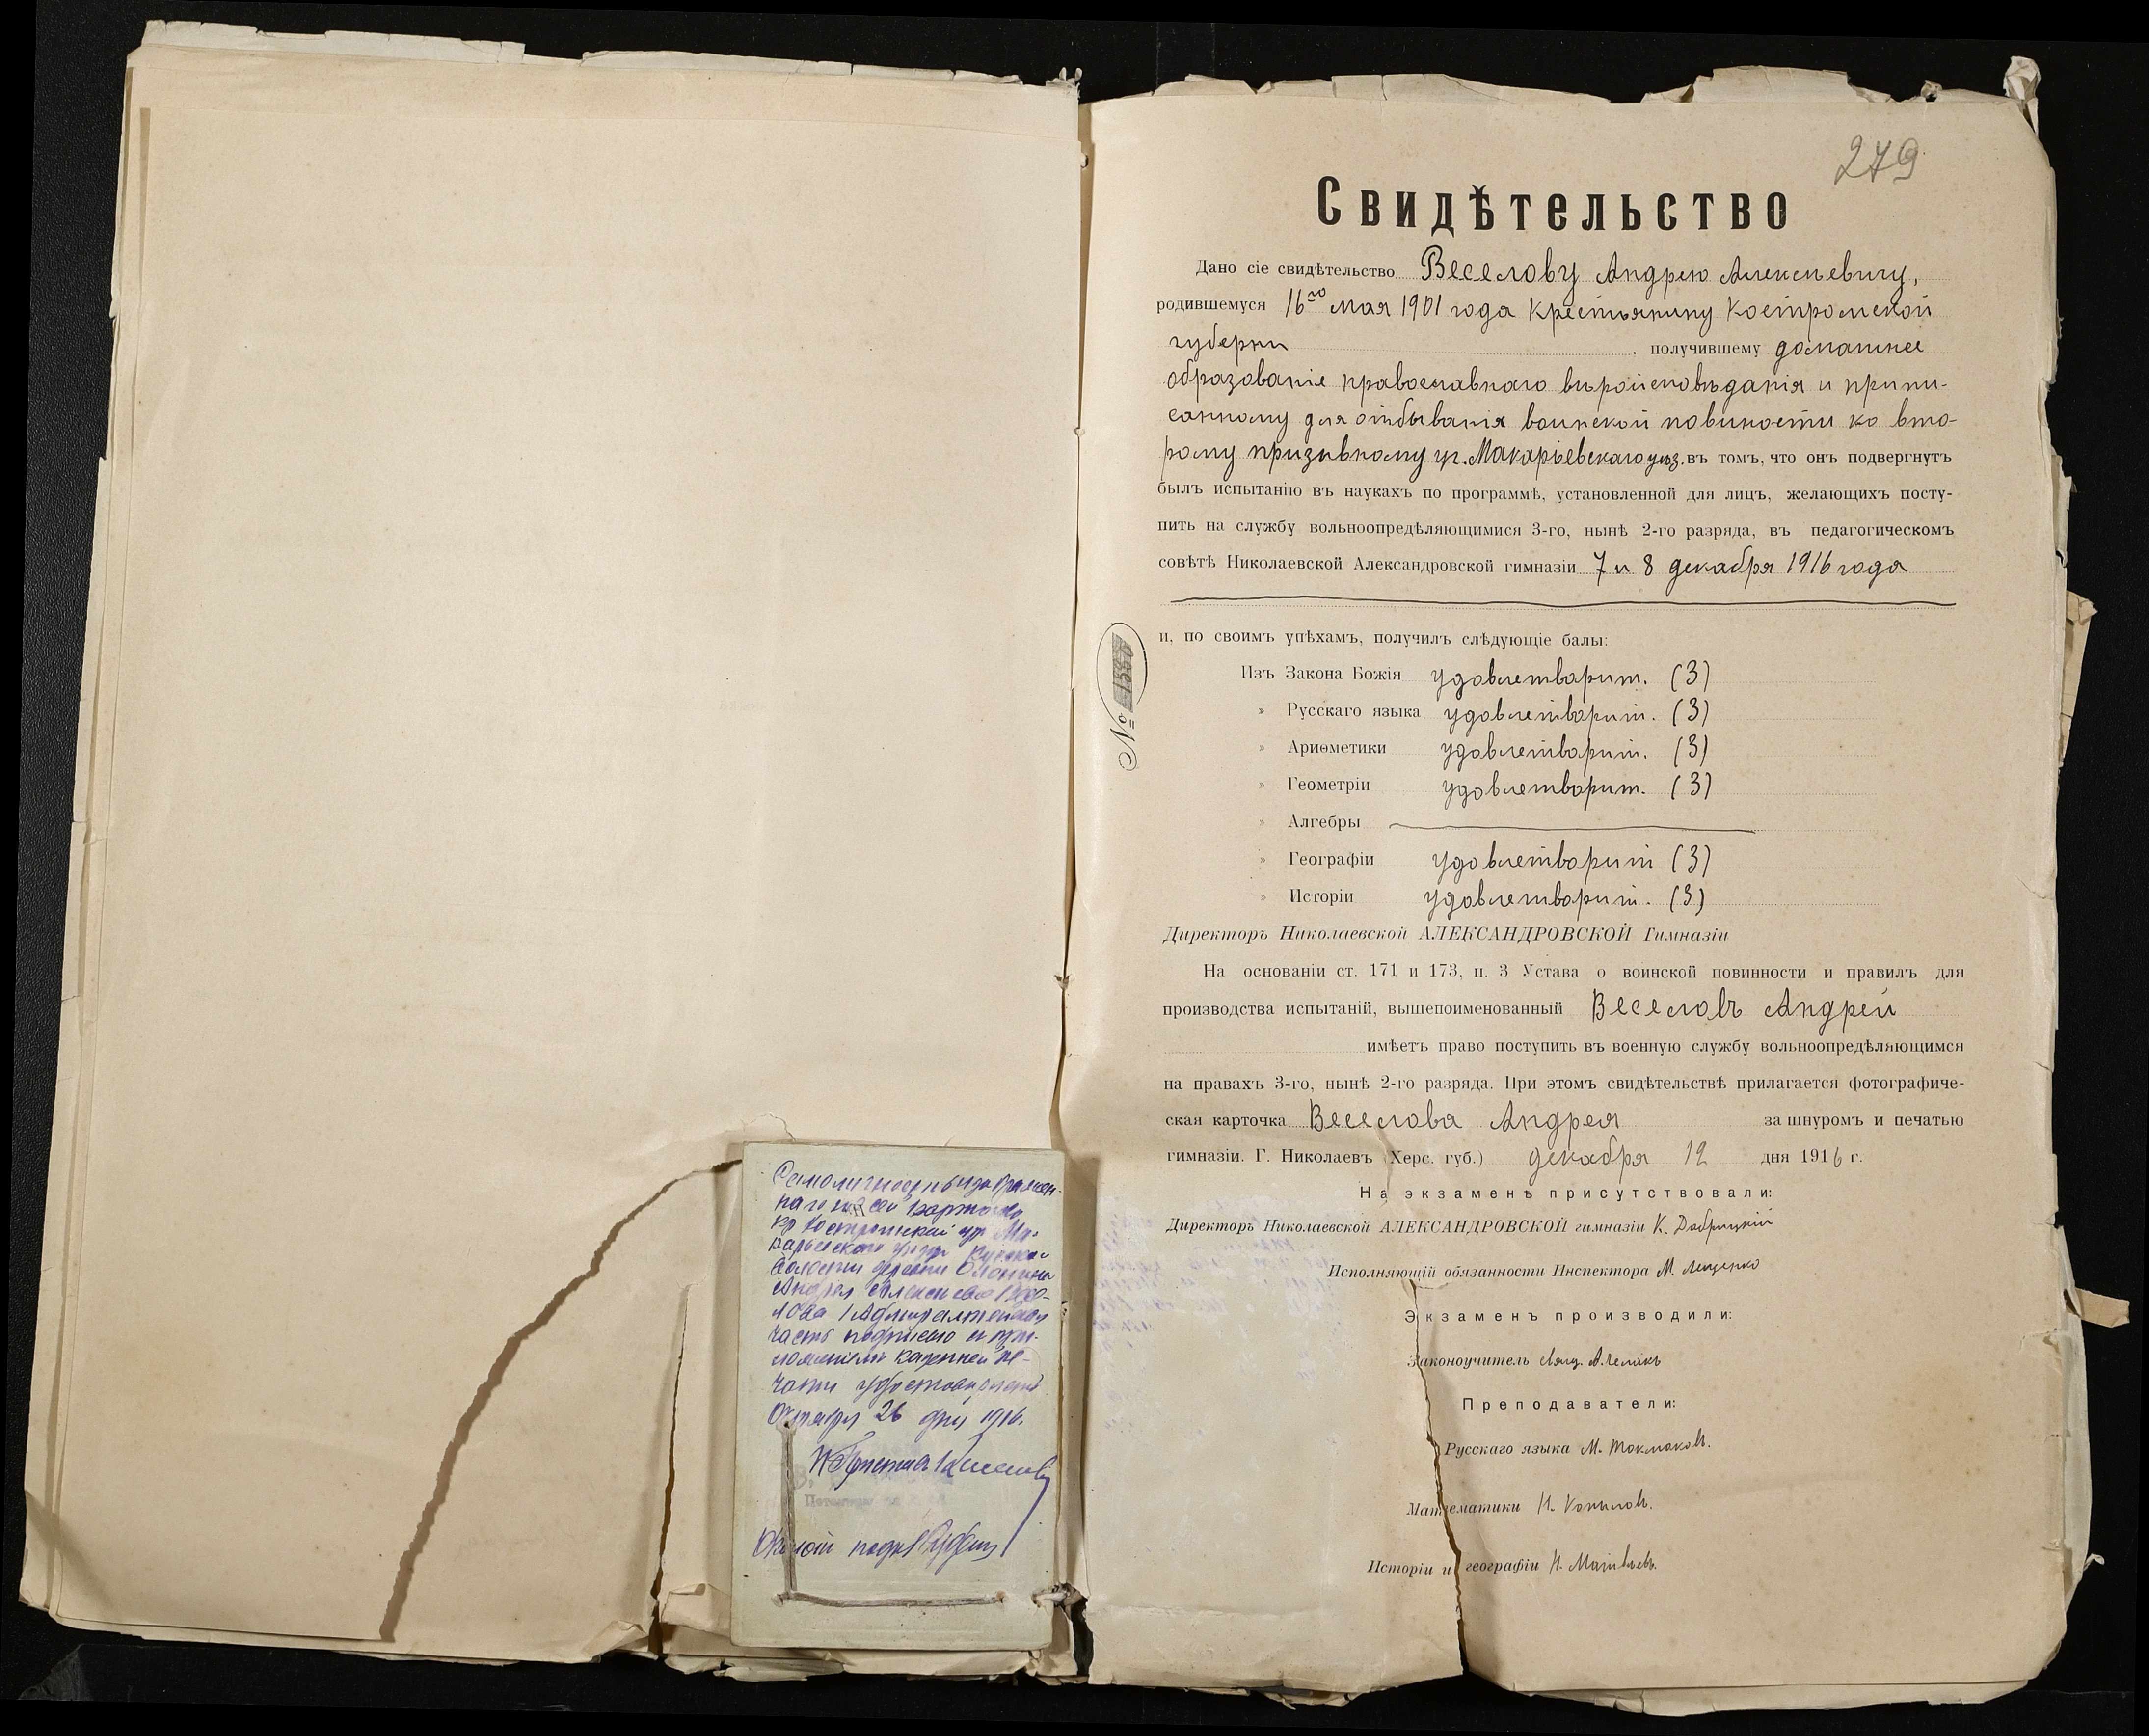 Самоличность изображен-
наго на сей карточке
кр. Костромской губ. Ма-
карьевскаго уезда
волости деревни
Андрея Алексеева Весе-
лова 1 Адмиралтейская
часть подписью и при-
ложением казенной пе-
чати удостоверяет
Октября 26 дня 1916.
Пристав
279
Свидѣтельство
Дано сіе свидѣтельство Веселову Андрею Алексѣевичу,
родившемуся 16го мая 1901 года крестьянину Костромской
губерни . получившему домашнее
образованіе православнаго вѣроисповѣданія и припи-
санному для отбыванія воинской повиности ко вто-
рому призывному уч. Макарьевскаго уѣз. въ томъ, что онъ подвергнутъ
былъ испытанію въ наукахъ по программѣ, установленной для лицъ, желающихъ посту-
пить на службу вольноопредѣляющимися 3-го, нынѣ 2-го разряда, въ педагогическомъ
совѣтѣ Николаевской Александровской гимназіи 7 и 8 декабря 1916 года
№ 1330
и, по своимъ упѣхамъ, получилъ слѣдующіе балы:
Изъ Закона Божія удовлетварит. (3)
» Русскаго языка удовлетварит. (3)
» Ариѳметики удовлетварит. (3)
» Геометріи удовлетварит. (3)
» Алгебры
» Географіи удовлетварит (3)
» Исторіи удовлетварит. (3)
Директоръ Николаевской АЛЕКСАНДРОВСКОЙ Гимназіи
На основаніи ст. 171 и 173, п. 3 Устава о воинской повинности и правилъ для
производства испытаній, вышепоименованный Веселовъ Андрей
имѣетъ право поступить въ военную службу вольноопредѣляющимся
на правахъ 3-го, нынѣ 2-го разряда. При этомъ свидѣтельствѣ прилагается фотографиче-
ская карточка Веселова Андрея за шнуромъ и печатью
гимназіи. Г. Николаевъ (Херс. губ.) декабря 12 дня 1916 г.
На экзаменѣ присутствовали:
Директоръ Николаевской АЛЕКСАНДРОВСКОЙ гимназіи К. Добрицкій
Исполняющій обязанности Инспектора М. Лещенко
Экзаменъ производили:
Законоучитель свящ. А. Чемакъ
Преподаватели:
Русскаго языка М. Токмаковъ.
Математики Н. Копыловъ.
Исторіи и географіи Н. Матвѣевъ.